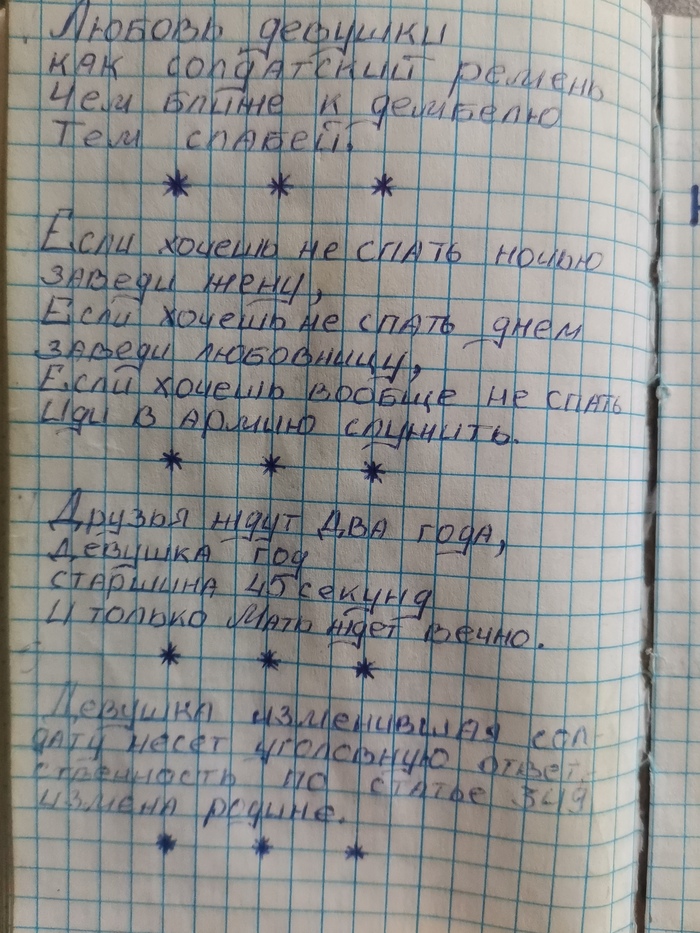 Любовь девушки
как солдатский ремень
Чем ближе к дембелю
Тем слабей.
* * *
Если хочешь не спать ночью
заведи жену,
Если хочешь не спать днем
заведи любовницу,
Если хочешь вообще не спать
Иди в армию служить.
* * *
Друзья ждут два года,
Девушка год
старшина 45 секунд
И только Мать ждет вечно.
* * *
Девушка изменившая сол-
дату несет уголовную ответ-
ственность по статье 349
измена родине.
* * *